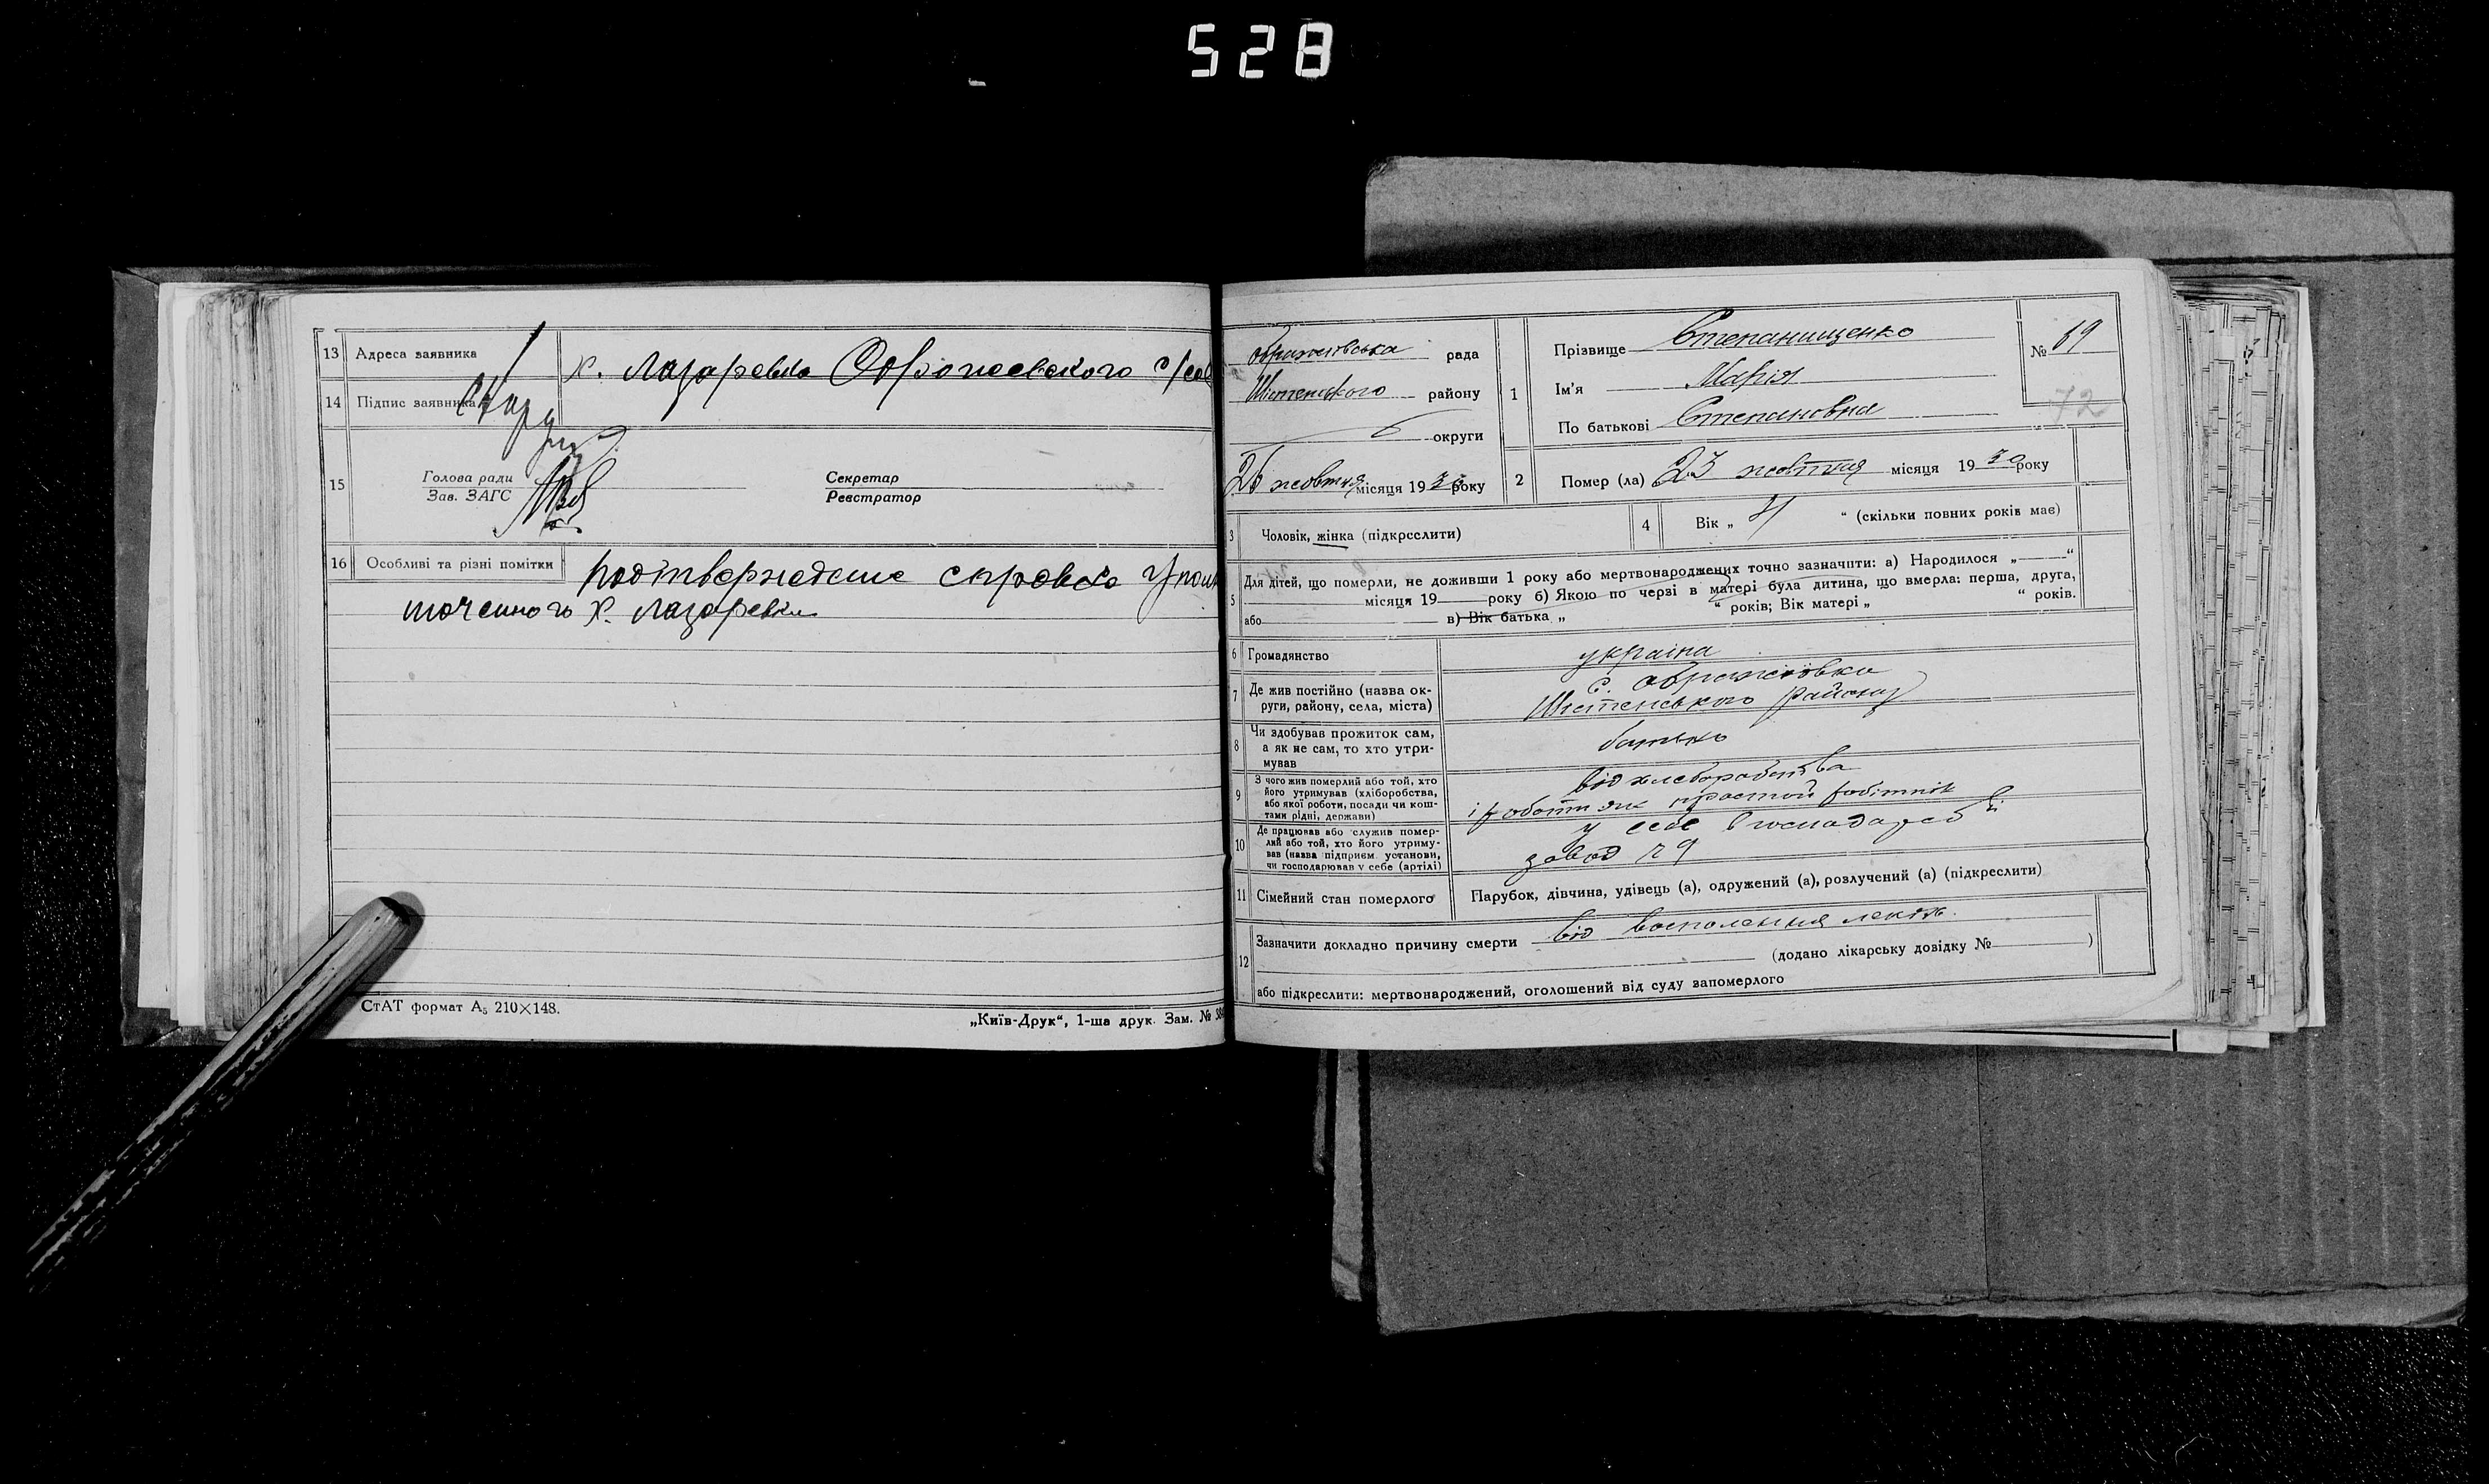 528
13 Адреса заявника х. Лазаревка Оброжеевского с/сов
14 Підпис заявника
15 Голова ради Зав. ЗАГС Секретар Реєстратор
16 Особливі та різні помітки подтверждение справка Упол
моченного х. Лазаревки
СтАТ формат А5 210×148.
„Київ-Друк“, 1-ша друк. Зам. №
рада
району
округи
26 жовтня місяця 1930 року
1 Прізвище Степанищенко
Ім'я Марія
По батькові Степановна
№ 69
72
2 Помер (ла) 23 жовтня місяця 1930 року
3 Чоловік, жінка (підкреслити)
4 Вік „ 4 “ (скільки повних років має)
5 Для дітей, що померли, не доживши 1 року або мертвонароджених точно зазначити: а) Народилося „ “
місяця 19 року б) Якою по черзі в матері була дитина, що вмерла: перша, друга,
або в) Вік батька „ “ років; Вік матері „ “ років.
6 Громадянство україна
7 Де жив постійно (назва ок-
руги, району, села, міста)
с. ображіївка
району
8 Чи здобував прожиток сам,
а як не сам, то хто утри-
мував
батько
9 З чого жив померлий або той, хто
його утримував (хліборобства,
або якої роботи, посади чи кош-
тами рідні, держави)
від хлеборобства
і роботи як простой робітнік
10 Де працював або служив помер-
лий або той, хто його утриму-
вав (назва підприєм. установи,
чи господарював у себе (артілі)
у себе в господарстві
завод 29
11 Сімейний стан померлого Парубок, дівчина, удівець (а), одружений (а), розлучений (а) (підкреслити)
12 Зазначити докладно причину смерти від воспаления
(додано лікарську довідку № )
або підкреслити: мертвонароджений, оголошений від суду запомерлого